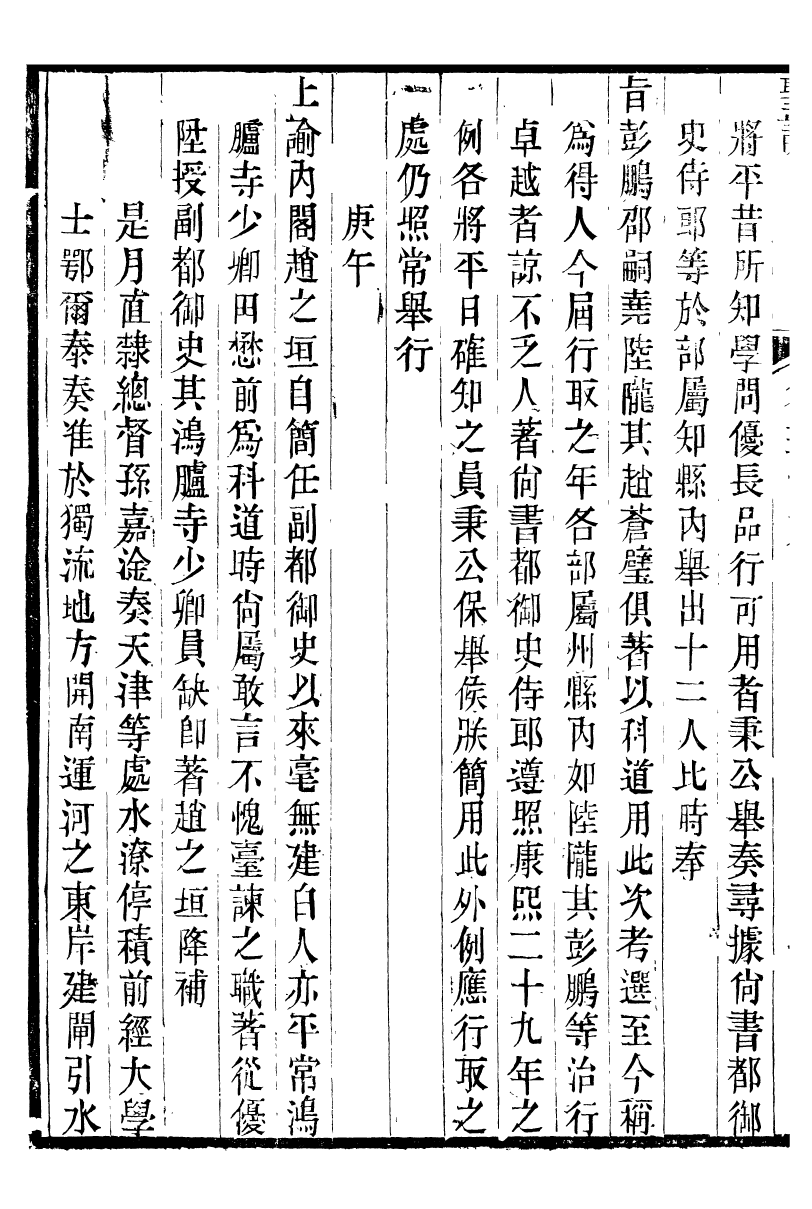 將平昔所知學問優長品行可用者秉公舉奏尋據尙書都御
史侍郎等於部屬知縣內舉出十二人比時奉
旨彭鵬邵嗣堯陸隴其趙蒼璧俱著以科道用此次考選至今稱
為得人今屆行取之年各部屬州縣內如陸隴其彭鵬等治行
卓越者諒不乏人著尙書都御史侍郎遵照康熙二十九年之
例各將平日確知之員秉公保舉候朕簡用此外例應行取之
處仍照常舉行
庚午
上諭內閣趙之垣自簡任副都御史以來毫無建白人亦平常鴻
臚寺少卿田懋前爲科道時尙屬敢言不愧臺諫之職著從優
陞授副都御史其鴻臚寺少卿員缺卽著趙之垣降補
是月直隸總督孫嘉淦奏天津等處水潦停積前經大學
士鄂爾泰奏准於獨流地方開南運河之東岸建閘引水